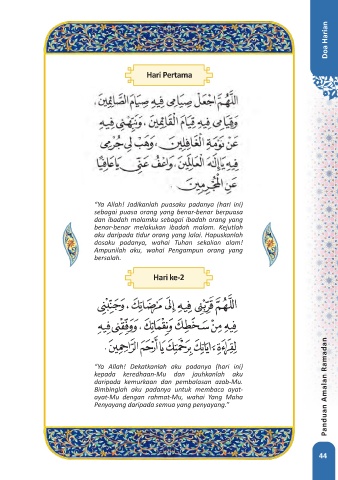 Doa Harian
Hari Pertama
اَللّٰهُمَّ اجْعَلْ صِيَامِي فِيهِ صِيَامَ الصَّائِمِينَ ،
وَقِيَامِي فِيهِ قِيَامَ الْقَائِمِينَ ، وَنَبِّهْنِي فِيهِ
عَنْ نَوْمَةِ الْغَافِلِينَ ، وَهَبْ لِي جُرْمِي
فِيهِ يَا إِلٰهَ الْعَالَمِينَ ، وَاعْفُ عَنِّي يَا عَافِيًا
عَنِ الْمُجْرِمِينَ .
"Ya Allah! Jadikanlah puasaku padanya (hari ini)
sebagai puasa orang yang benar-benar berpuasa
dan ibadah malamku sebagai ibadah orang yang
benar-benar melakukan ibadah malam. Kejutlah
aku daripada tidur orang yang lalai. Hapuskanlah
dosaku padanya, wahai Tuhan sekalian alam!
Ampunilah aku, wahai Pengampun orang yang
bersalah.
Hari ke-2
اَللّٰهُمَّ قَرِّبْنِي فِيهِ إِلَى مَرْضَاتِكَ ، وَجَنِّبْنِي
فِيهِ مِنْ سَخَطِكَ وَنَقِمَاتِكَ ، وَوَفِّقْنِي فِيهِ
لِقِرَاءَةِ آيَاتِكَ بِرَحْمَتِكَ يَا أَرْحَمَ الرَّاحِمِينَ .
"Ya Allah! Dekatkanlah aku padanya (hari ini)
kepada keredhaan-Mu dan jauhkanlah aku
daripada kemurkaan dan pembalasan azab-Mu.
Bimbinglah aku padanya untuk membaca ayat-
ayat-Mu dengan rahmat-Mu, wahai Yang Maha
Penyayang daripada semua yang penyayang."
Panduan Amalan Ramadan
44